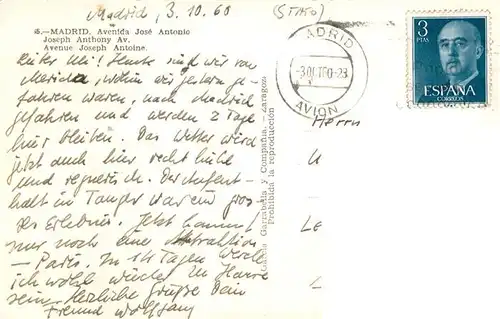 Madrid, 3.10.60
5.-MADRID. Avenida José Antonio
Joseph Anthony Av.
Avenue Joseph Antoine.
Lieber Uli! Heute sind wir von
wohin wir gestern ge-
fahren waren, nach Madrid
gefahren und werden 2 Tage
hier bleiben. Das Wetter wird
jetzt auch hier recht kühl
und regnerisch. Der Aufent-
halt in Tanger war ein gros-
ses Erlebnis. Jetzt kommt
nur noch eine Attraktion
- Paris. In 14 Tagen werde
ich wohl wieder zu Hause
sein. Herzliche Grüße Dein
Freund Wolfgang
Garrabella y Compañía. - Zaragoza
Prohibida la reproducción
ADRID
AVION
3
PTAS
ESPAÑA
CORREOS
Herrn
U
LE
L